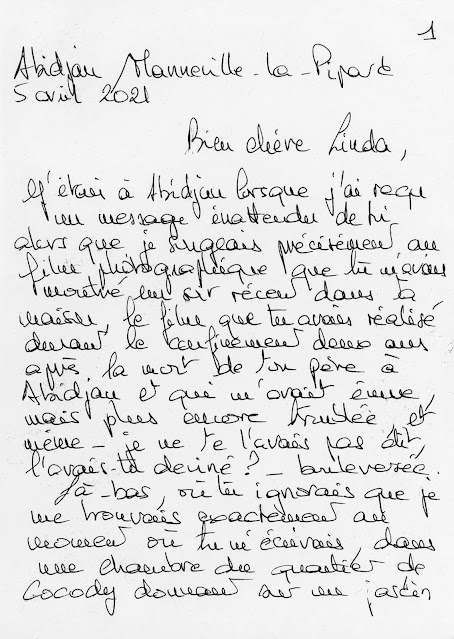 1
Abidjan Manneville-la-Pipard
5 avril 2021
Bien chère Linda,
J'étais à Abidjan lorsque j'ai reçu
un message inattendu de toi
alors que je songeais précisément au
film photographique que tu m'avais
montré un soir récent dans ta
maison, le film que tu avais réalisé
durant le confinement deux ans
après la mort de ton père à
Abidjan et qui m'avait émue,
mais plus encore troublée et
même – je ne te l'avais pas dit,
l'avais-tu deviné? – bouleversée.
Là-bas, où tu ignorais que je
me trouvais exactement au
moment où tu m'écrivais, dans
une chambre du quartier de
Cocody donnant sur un jardin